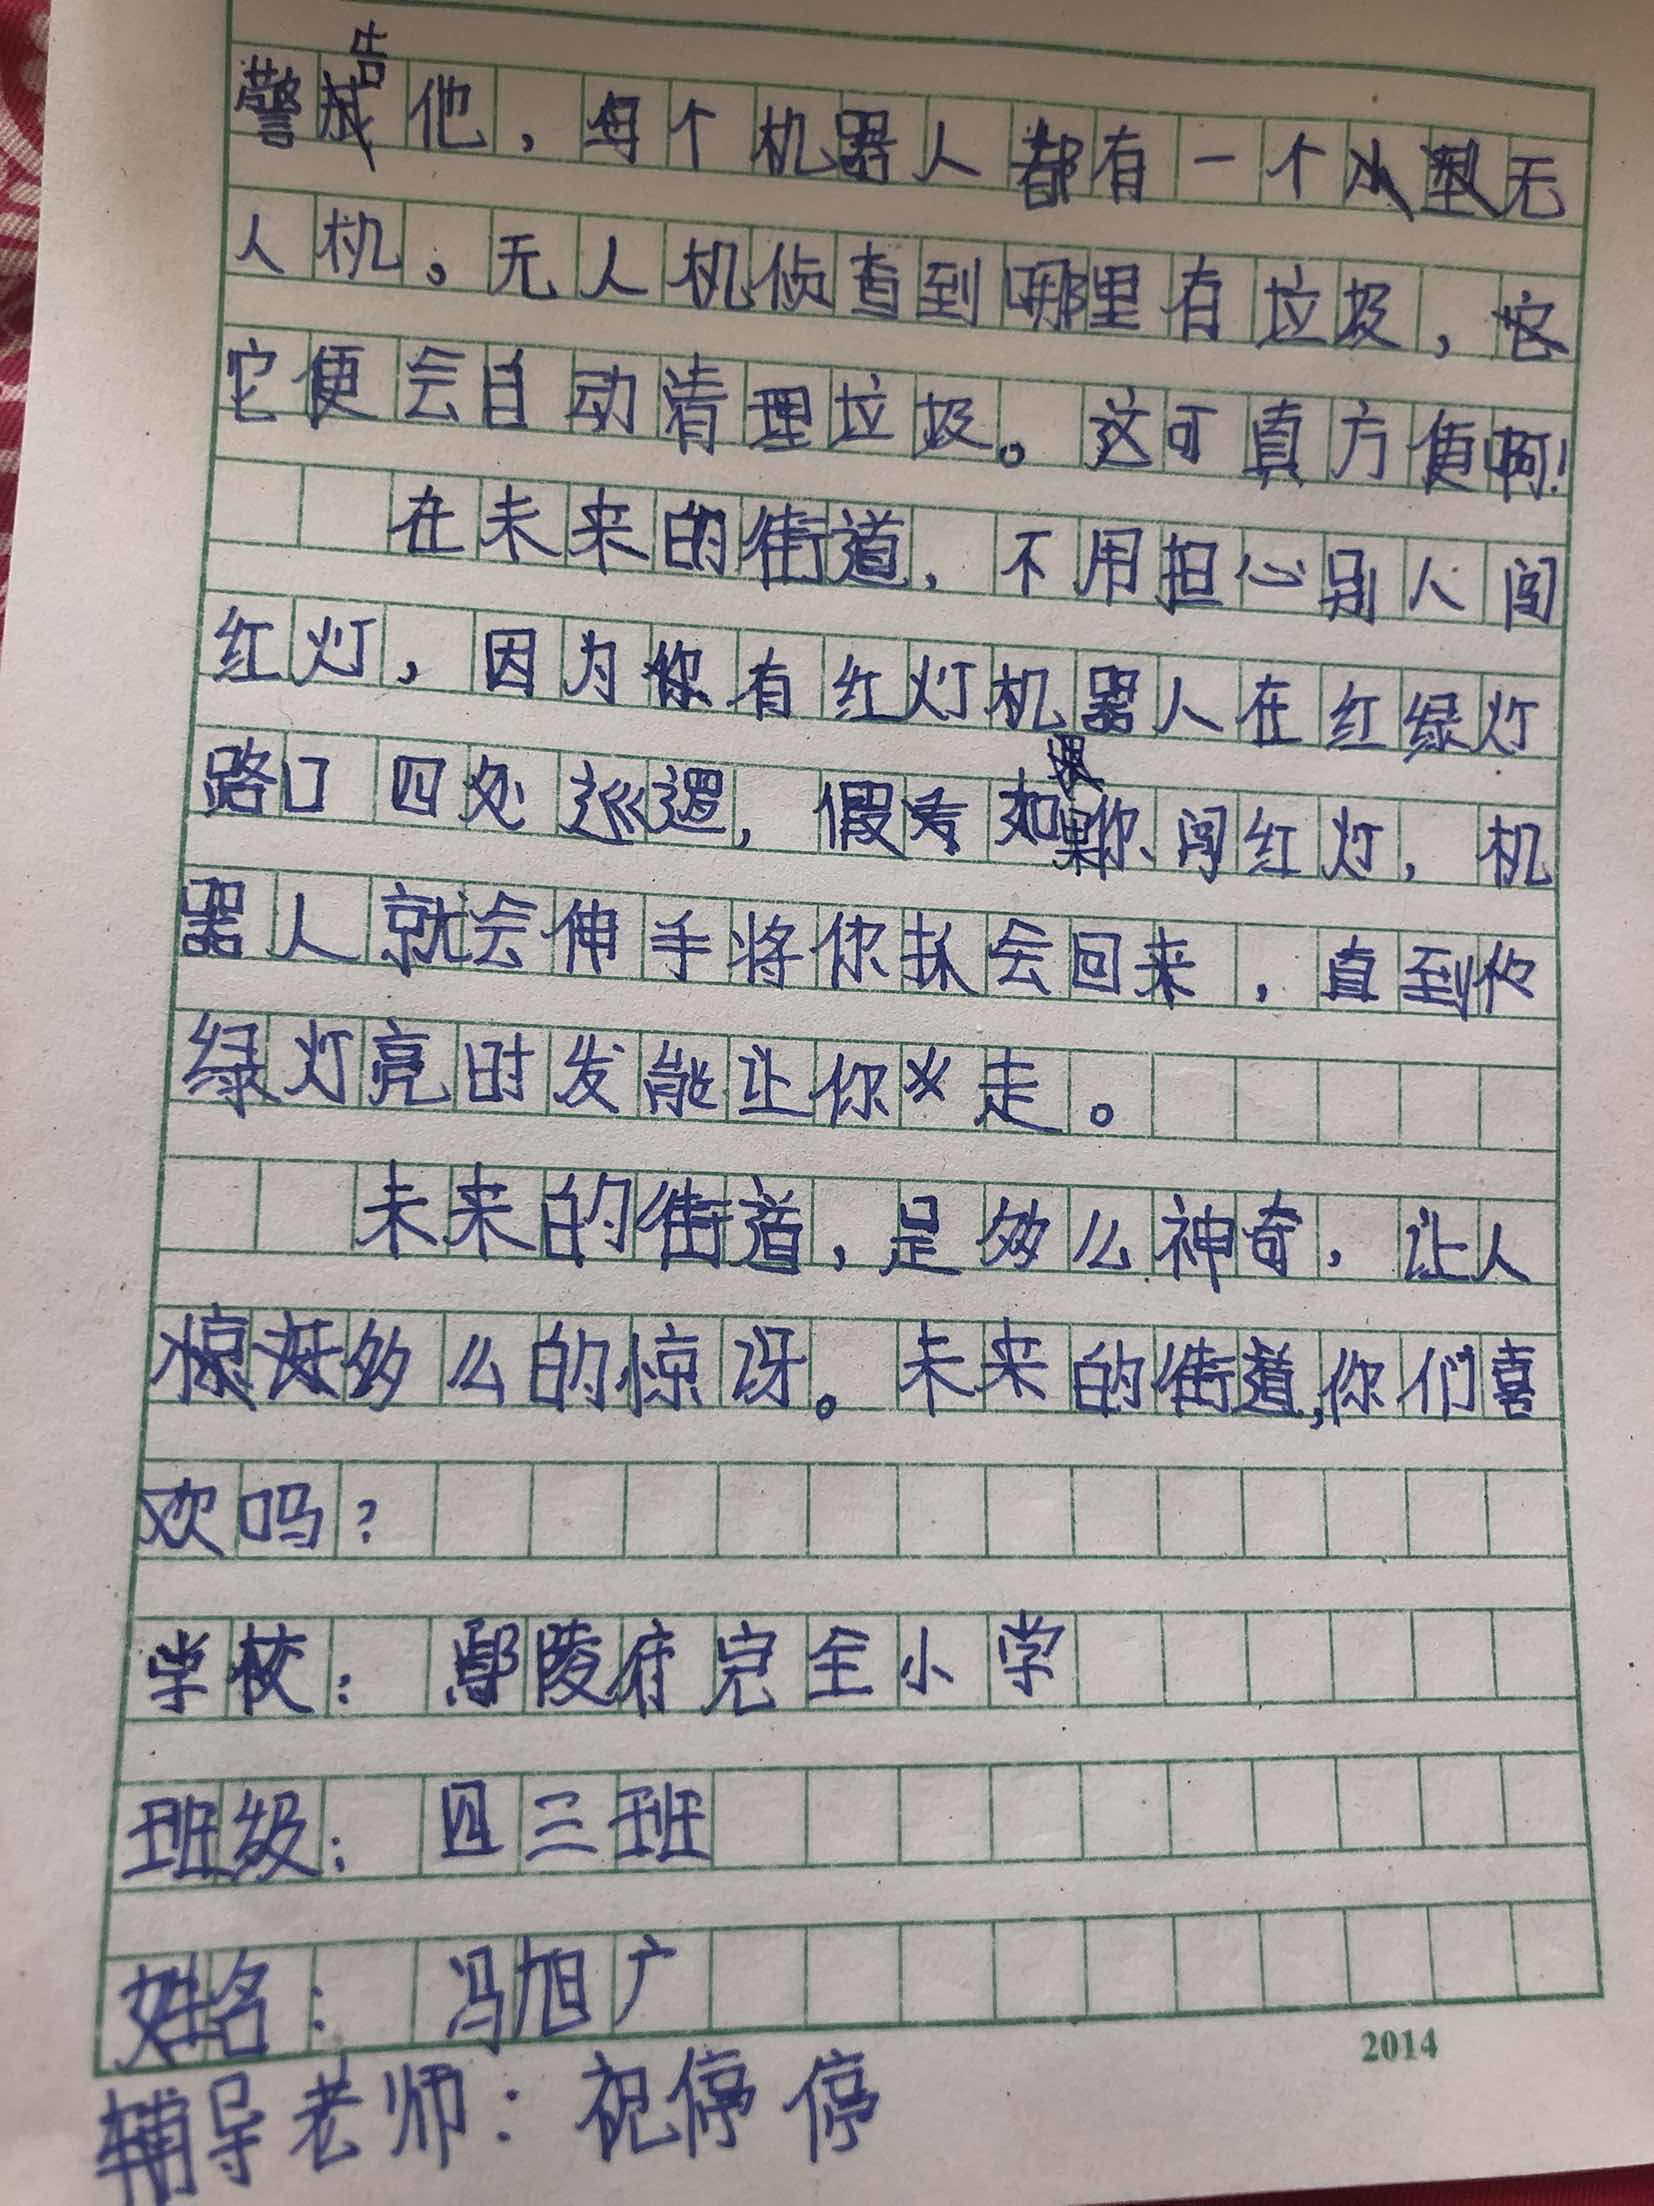 警告他，每个机器人都有一个小型无
人机。无人机侦查到哪里有垃圾，它
它便会自动清理垃圾。这可真方便啊！
在未来的街道，不用担心别人闯
红灯，因为你有红灯机器人在红绿灯
路口四处巡逻，假如果你闯红灯，机
器人就会伸手将你抹会回来，直到你
绿灯亮时发能让你走。
未来的街道，是多么神奇，让人
多么的惊讶。未来的街道，你们喜
欢吗？
学校：鄢陵府完全小学
班级：四三班
姓名：冯旭广
2014
辅导老师：祝停停